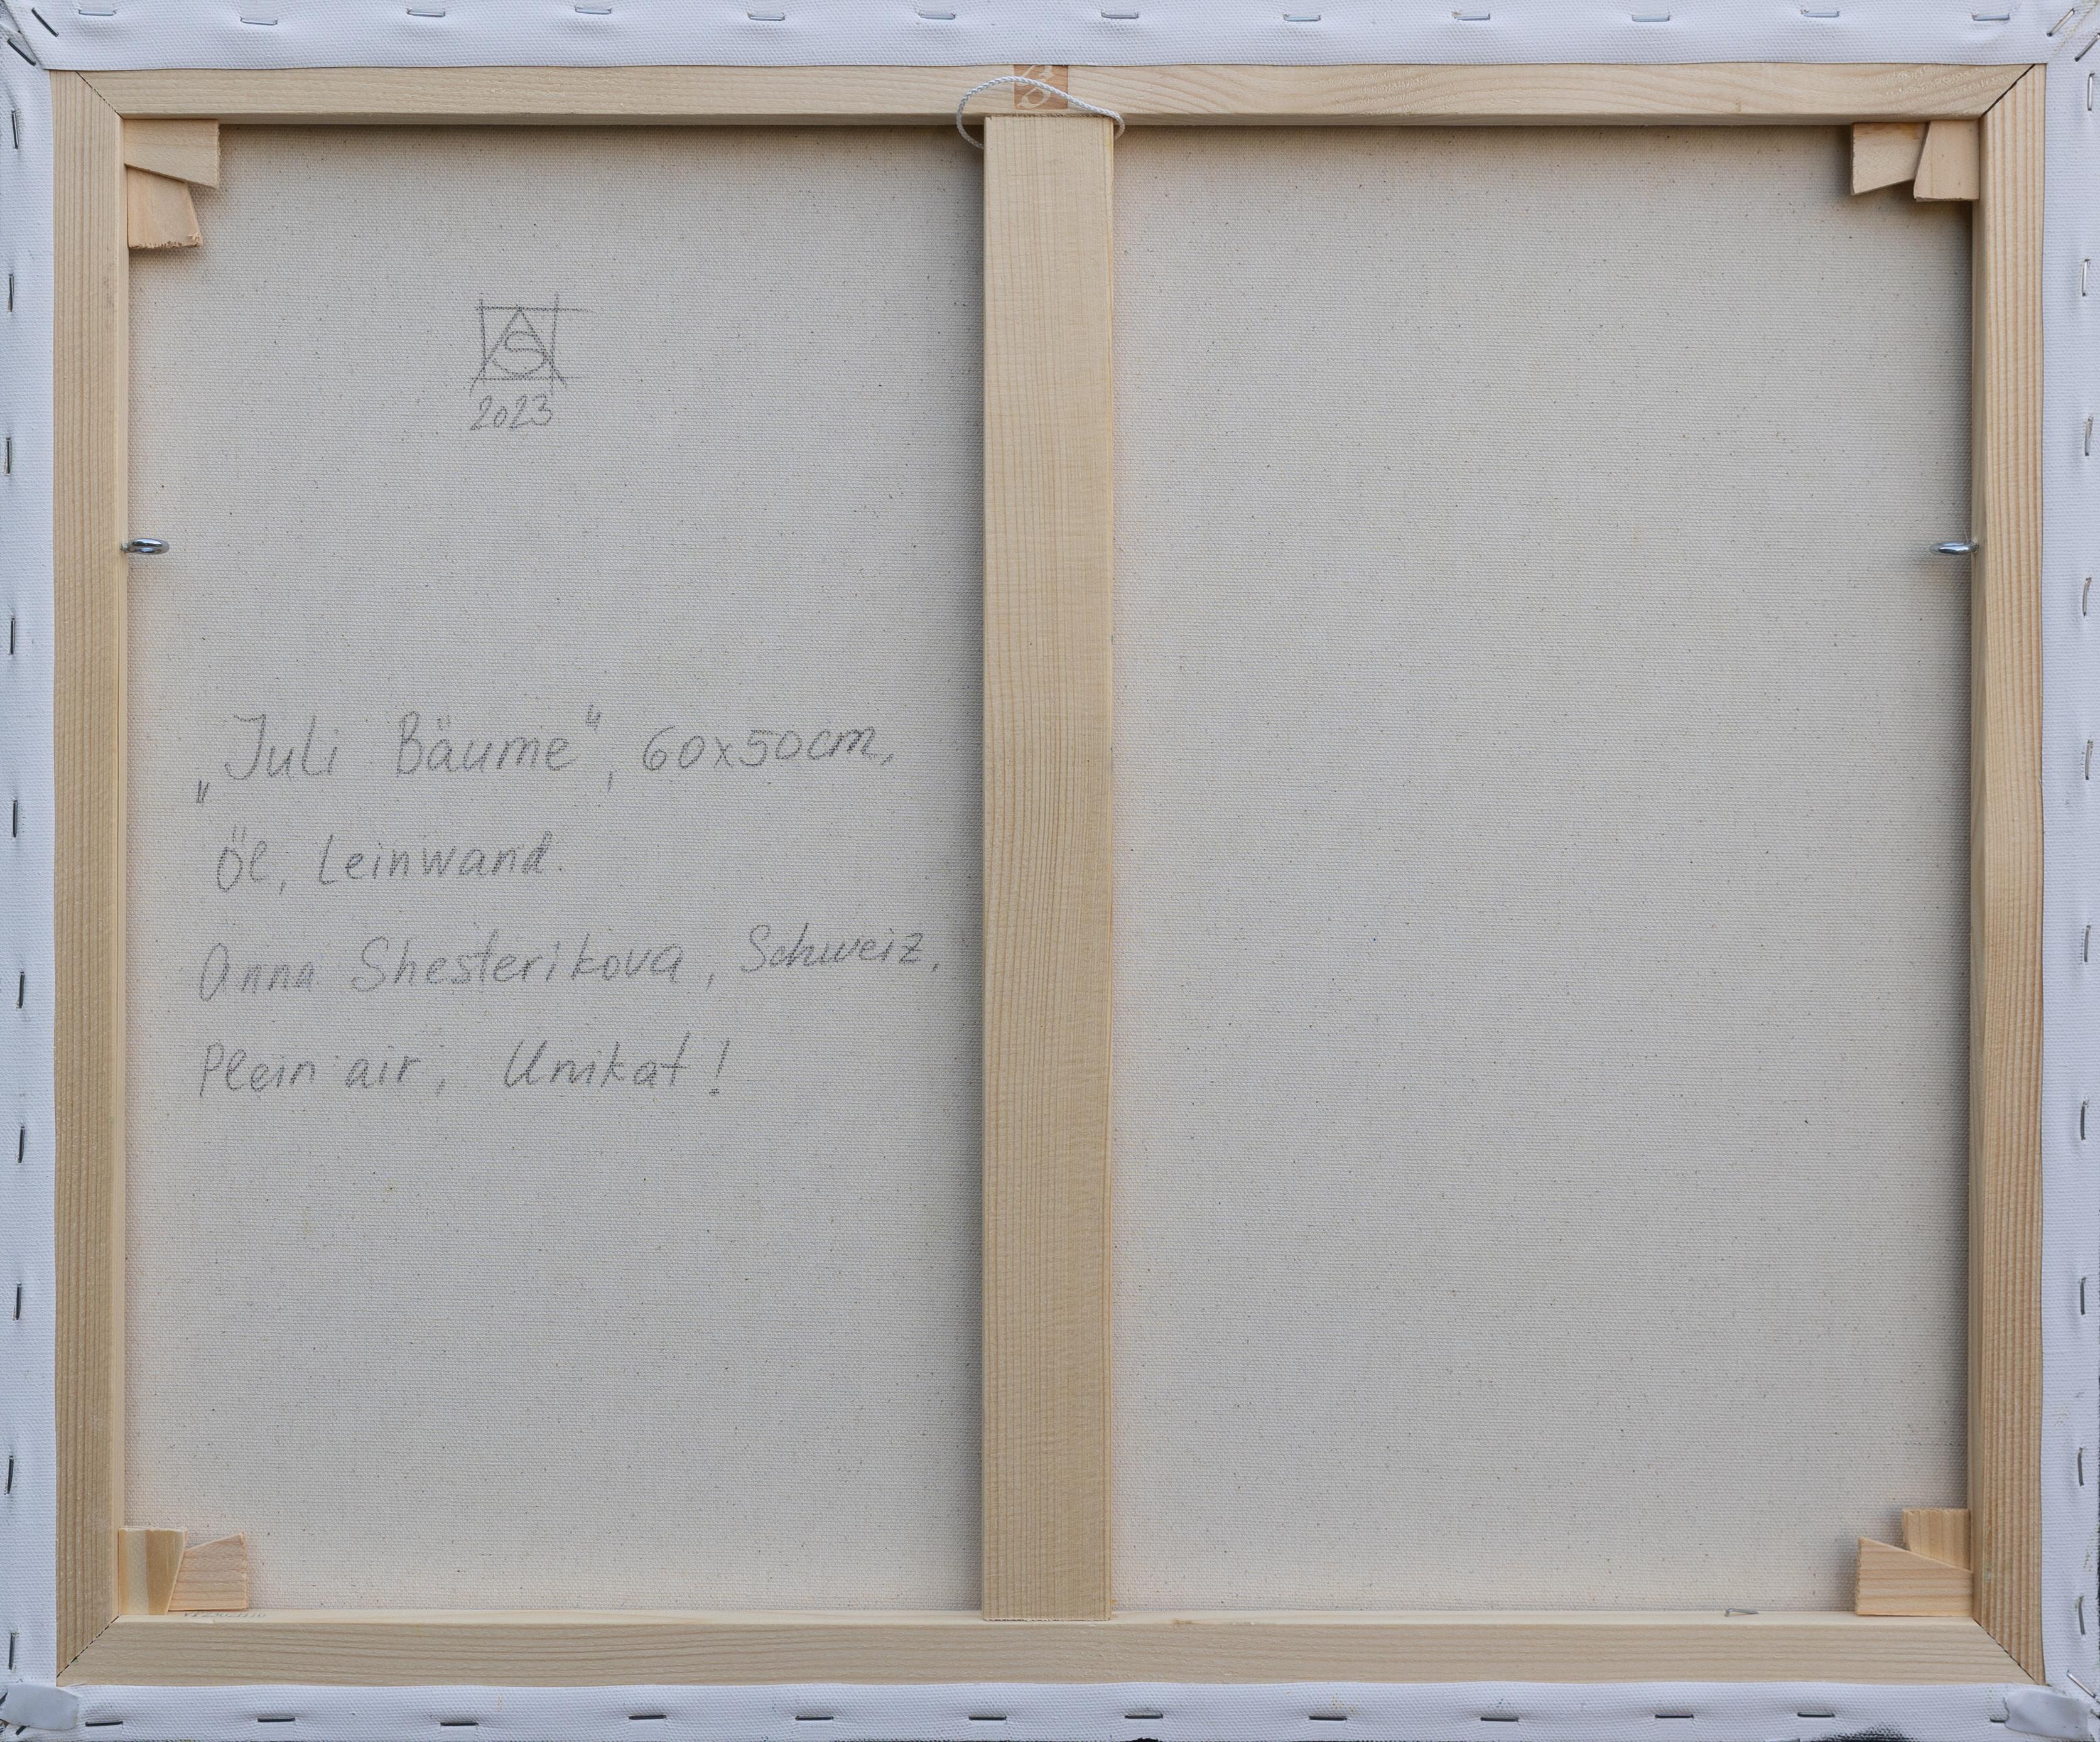 AS
2023
„Juli Bäume“, 60x50cm,
Öl, Leinwand.
Anna Shesterikova, Schweiz,
Plein air, Unikat!